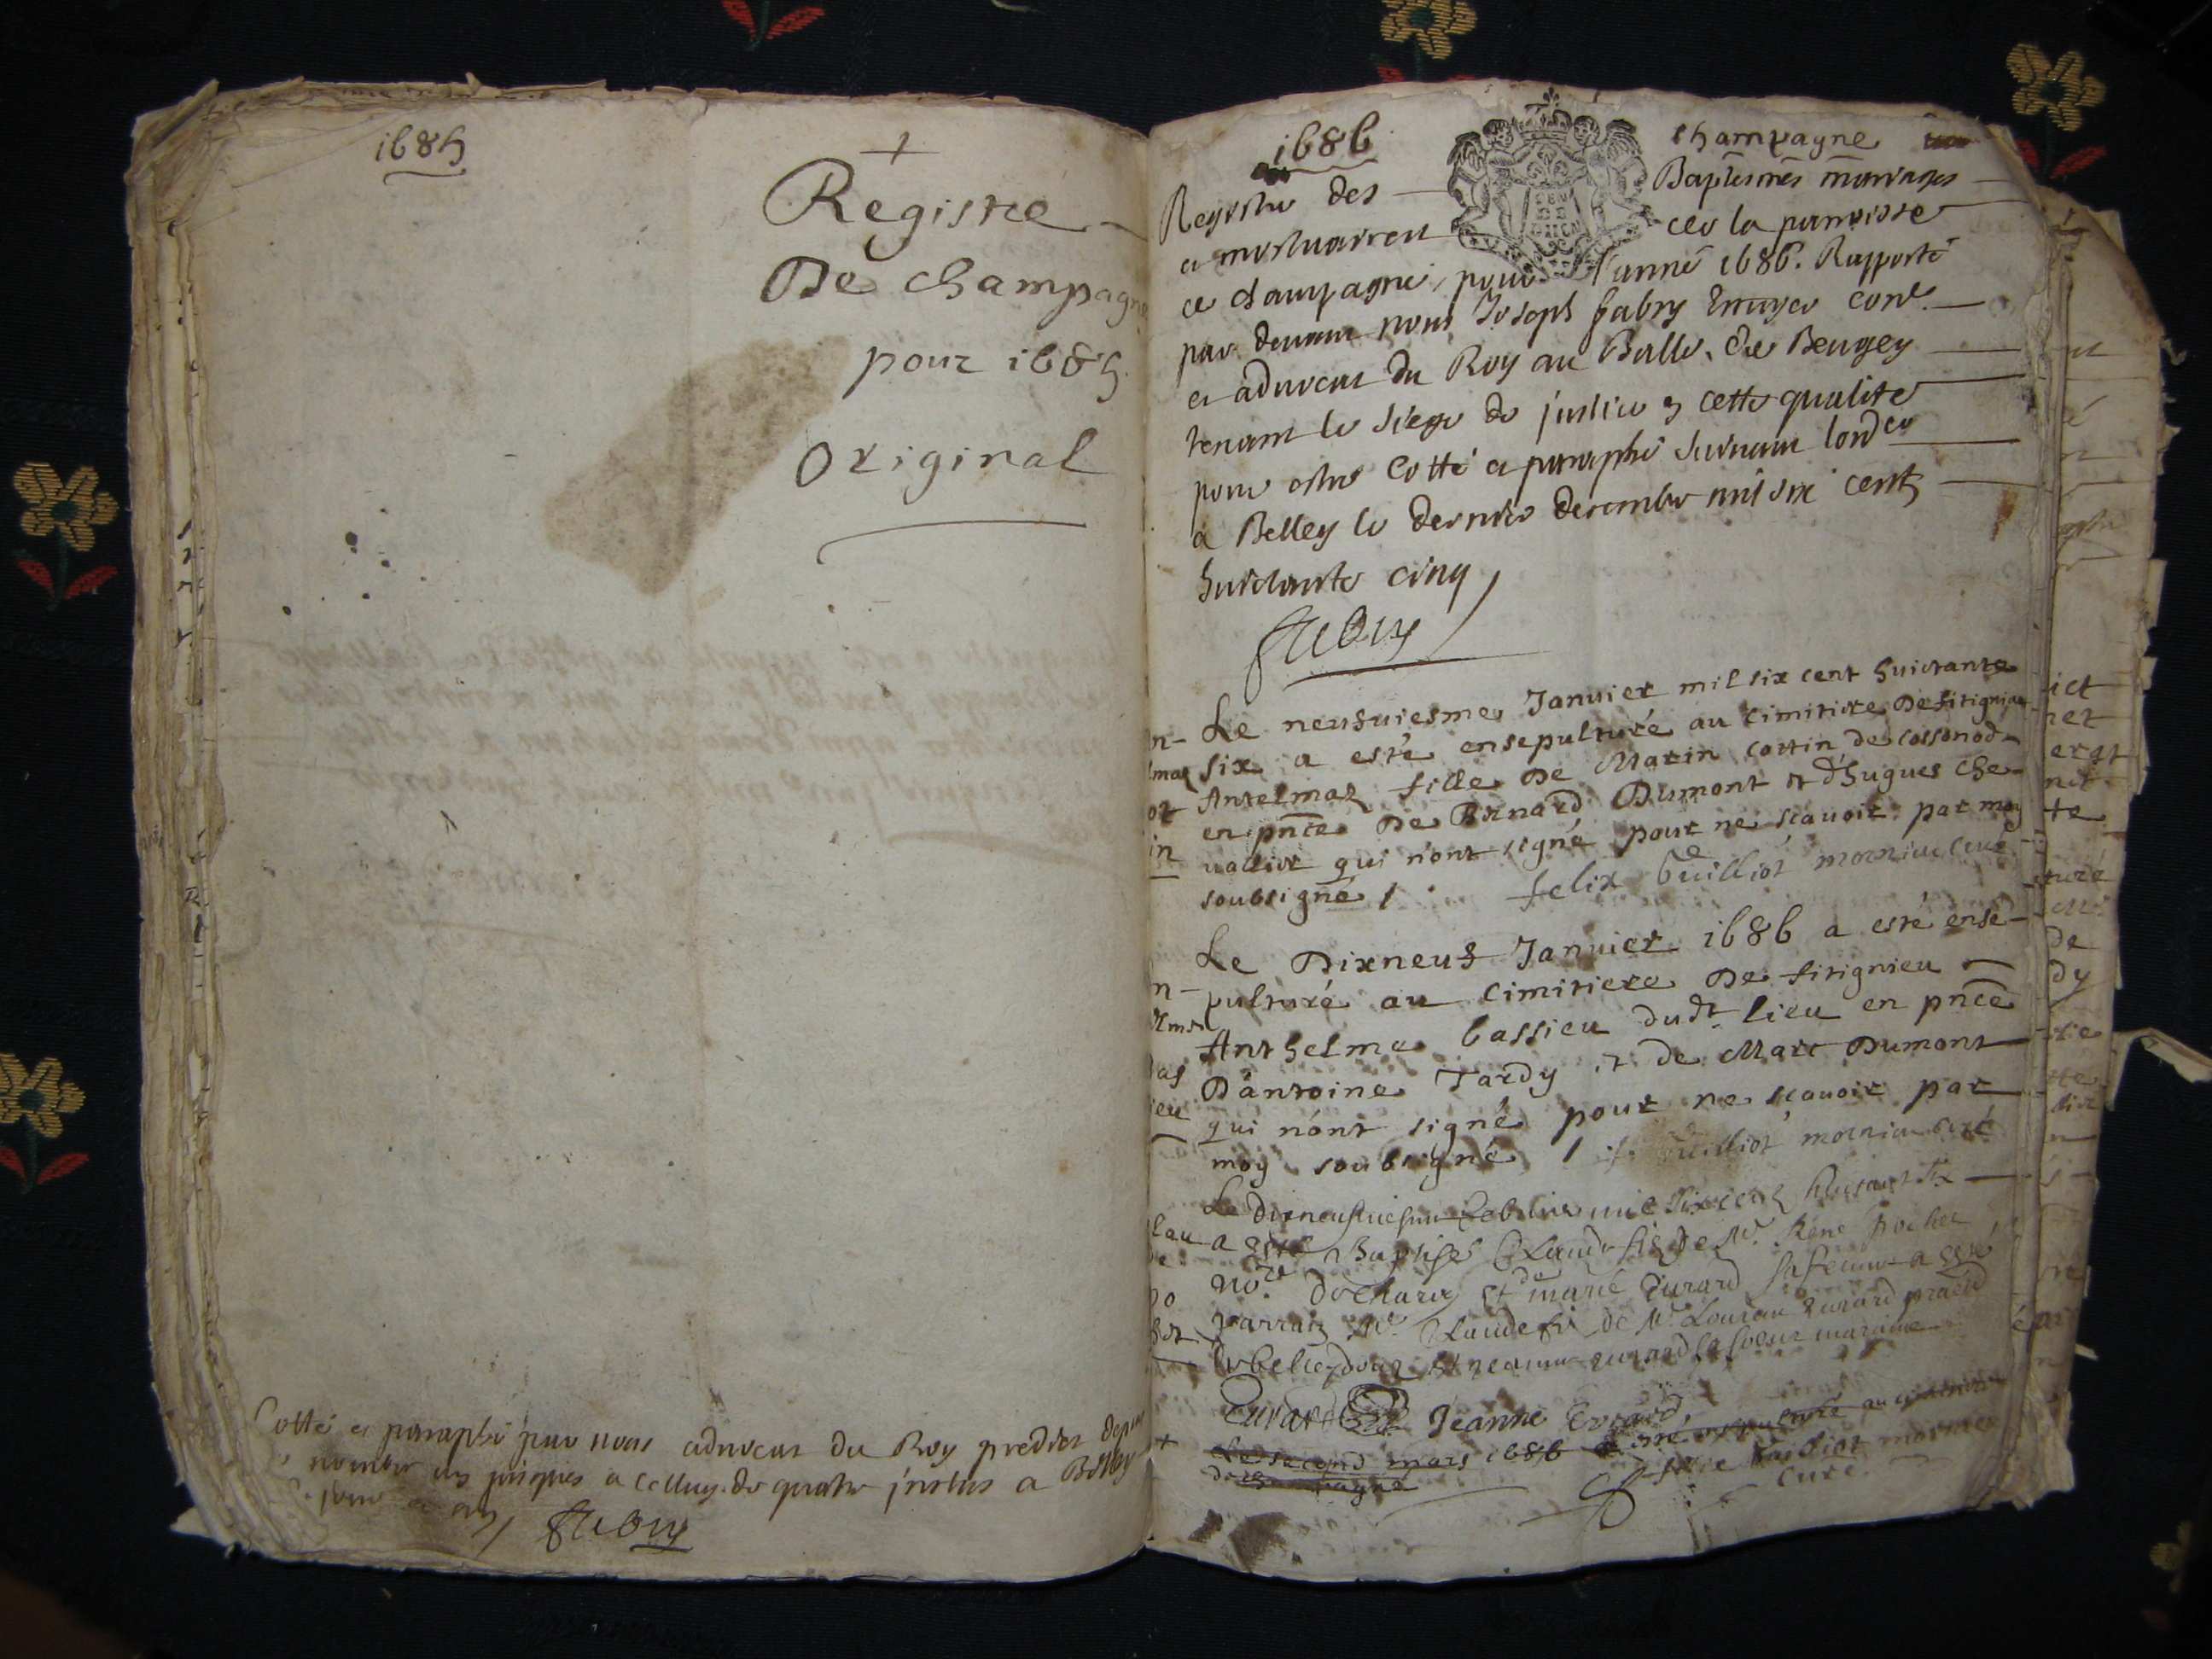 1685
Registre
De champagne
pour 1685
Original
Cotté et paraphé par nous advocat du Roy predict depuis
nombre un jusques a celluy de quatre inclus a Belley
jour et an
Fabry
1686
champagne
Registre des Baptesmes mariages
et mortuaires de la parroisse
de champagne, pour l'anné 1686. Rapporté
par devant nous Joseph fabry Escuyer
et advocat du Roy au Balle. de Beugey
tenant le siege de justice en cette qualite
pour estre Cotté et paraphé suivant lordce
à Belley le dernier decembre mil six cents
huictante cinq
Fabry
Le neufviesme Januier mil six cent huictante
six a esté ensepulturée au cimitiere De fitignieu
Antelmaz fille De Marin cottin de cossonod
en pnce De Bernard Dumont et d'hugues che-
vallier qui n'ont signé pour ne scauoir par moy
soubsigné / felix Guilliot moenieu curé
Le Dixneuf Januier 1686 a esté ense-
pulturé au cimitiere De fitignieu
Anthelme bassieu dudt lieu en pnce
D'antoine Tardy et de Marc Dumont
qui n'ont signé pour ne scauoir par
moy soubsigné / f. Guilliot moenieu curé
Le dixneufuiesme Febvrier mil six centz huictant six
a esté Baptisé Claude fils de Mr. René
nore. de et de marie Eurard sa femme a esté
parrain Mr. Claude fils de Mr. Eurard
et jeanne eurard sa soeur maraine
Eurard Jeanne Evrard
Le second mars 1686 a esté ensepulturé au cimitiere
de champagne
Guilliot moenieu
curé